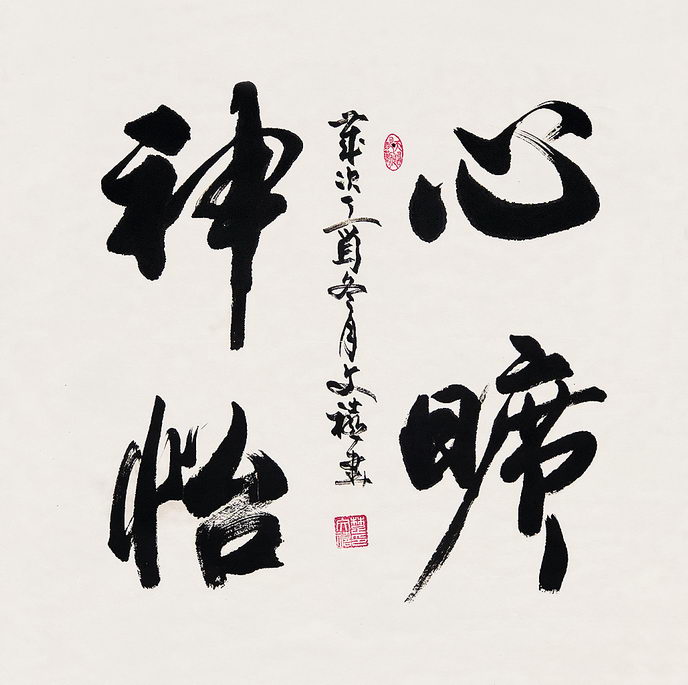 心曠
神怡
歲次丁酉冬月文禧書